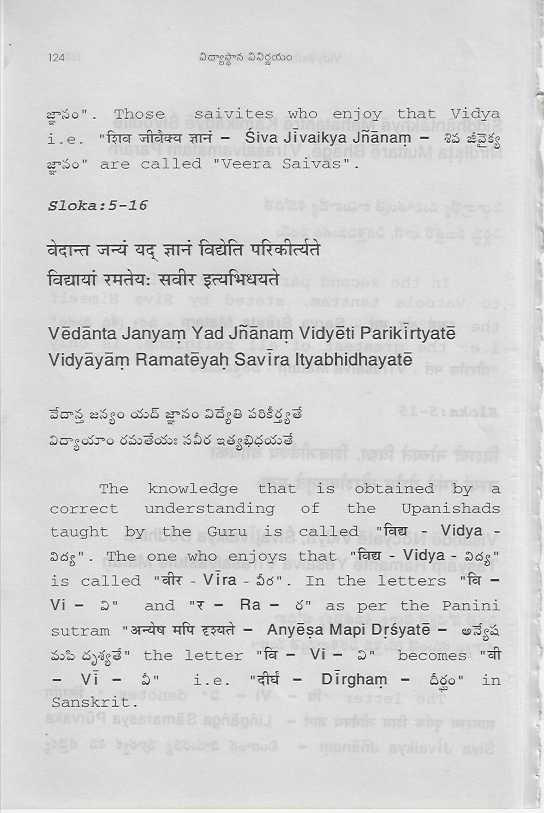 124 విద్యాస్థాన వివిర్ణయం
జ్ఞానం". Those saivites who enjoy that Vidya
i.e. "शिव जीवैक्य ज्ञानं – Śiva Jīvaikya Jñānaṃ – శివ జీవైక్య
జ్ఞానం" are called "Veera Saivas".
Sloka:5-16
वेदान्त जन्यं यद् ज्ञानं विद्येति परिकीर्त्यते
विद्यायां रमतेयः सवीर इत्यभिधयते
Vēdānta Janyaṃ Yad Jñānaṃ Vidyēti Parikīrtyatē
Vidyāyāṃ Ramatēyaḥ Savīra Ityabhidhayatē
వేదాన్త జన్యం యద్ జ్ఞానం విద్యేతి పరికీర్త్యతే
విద్యాయాం రమతేయః సవీర ఇత్యభిధయతే
The knowledge that is obtained by a
correct understanding of the Upanishads
taught by the Guru is called "विद्य - Vidya -
విద్య". The one who enjoys that "विद्य - Vidya - విద్య"
is called "वीर - Vīra - వీర". In the letters "वि –
Vi – వి" and "र – Ra – ర" as per the Panini
sutram "अन्येष मपि दृश्यते – Anyēṣa Mapi Dṛśyatē – అన్యేష
మపి దృశ్యతే" the letter "वि – Vi – వి" becomes "वी
– Vī – వీ" i.e. "दीर्घं – Dīrghaṃ – దీర్ఘం" in
Sanskrit.